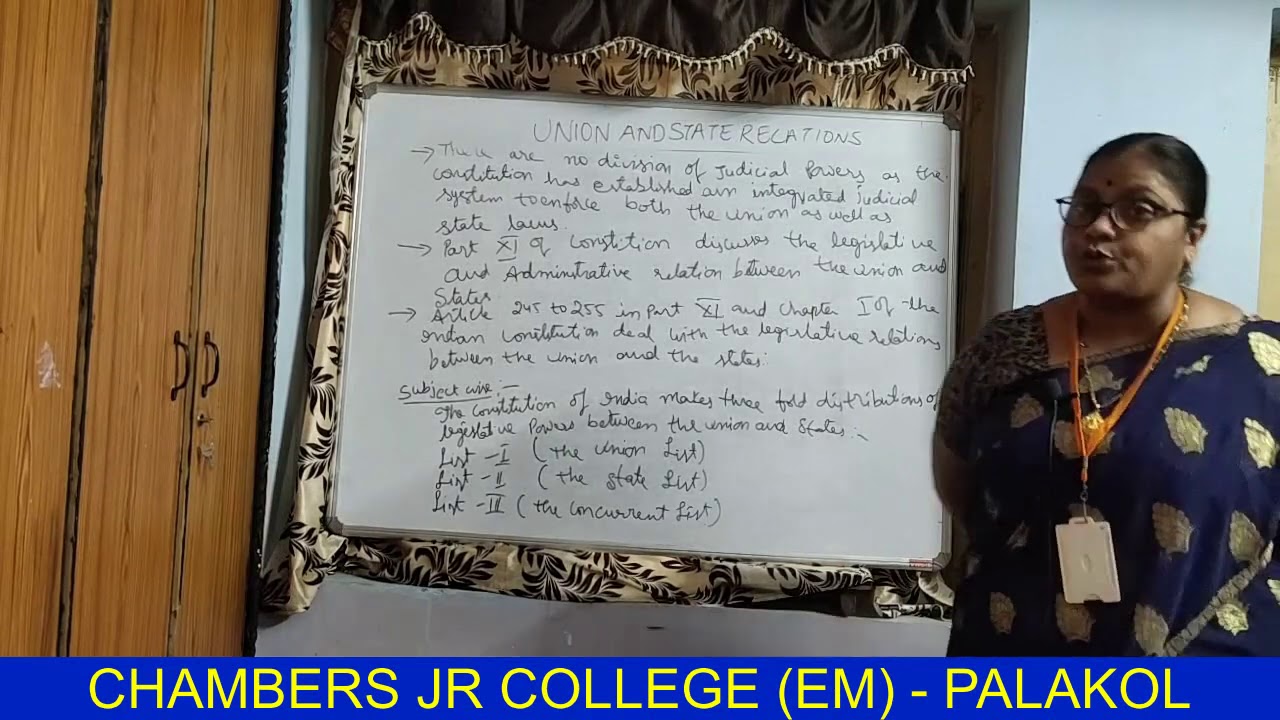 UNION AND STATE RELATIONS
→ There are no division of Judicial Powers as the
constitution has established an integrated judicial
system to enforce both the union as well as
state laws.
→ Part XI of Constition discuses the legislative
and Adminitrative relation between the union and
States
→ Article 245 to 255 in Part XI and Chapter I of the
Indian Constitution deal with the legislative relations
between the union and the states:
Subject wise :-
The Constitution of India makes three fold distributions of
legislative Powers between the union and States:-
List - I (the union List)
List - II (the state List)
List - III (the concurrent List)
CHAMBERS JR COLLEGE (EM) - PALAKOL